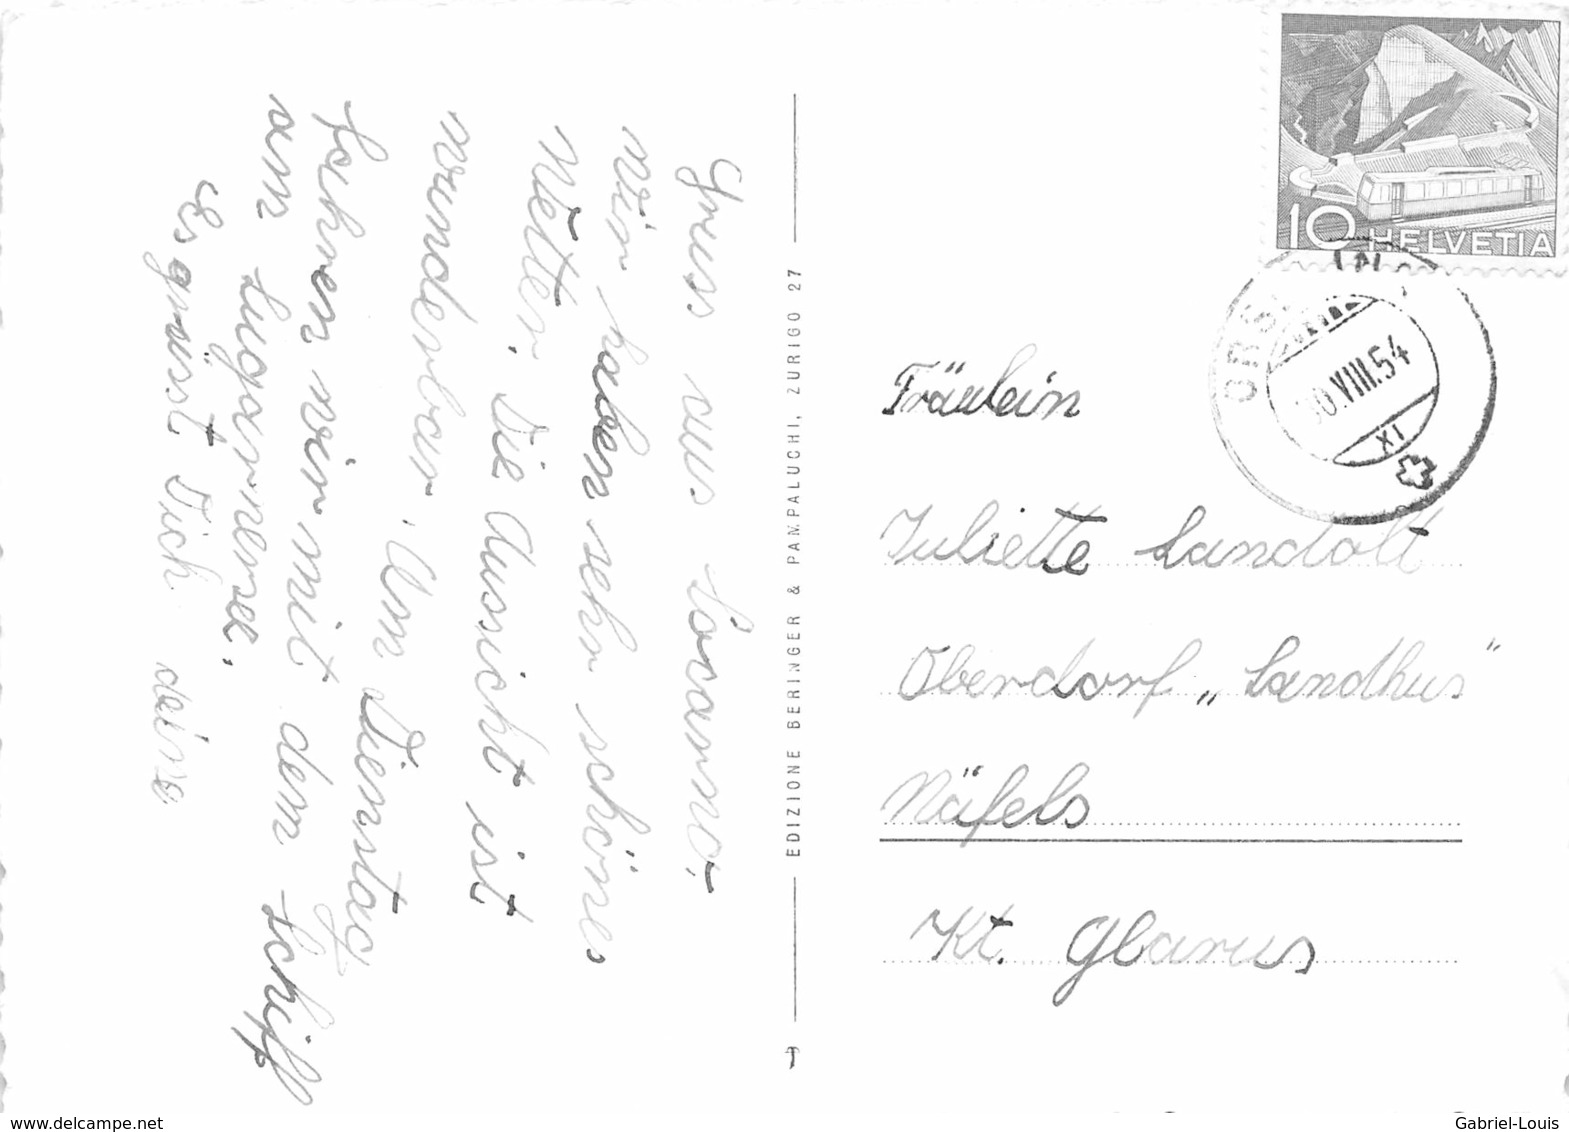 Gruss aus Locarno,
wir haben sehr schönes
Wetter, die Aussicht ist
wunderbar. Am Dienstag
fahren wir mit dem Schiff
am Luganersee.
Es grüsst Dich deine
EDIZIONE BERINGER & PAMPALUCHI, ZURIGO 27
10 HELVETIA
30.VIII.54
XI
Fräulein
Juliette Landolt
Oberdorf „Landhus"
Näfels
Kt. Glarus
www.delcampe.net
Gabriel-Louis